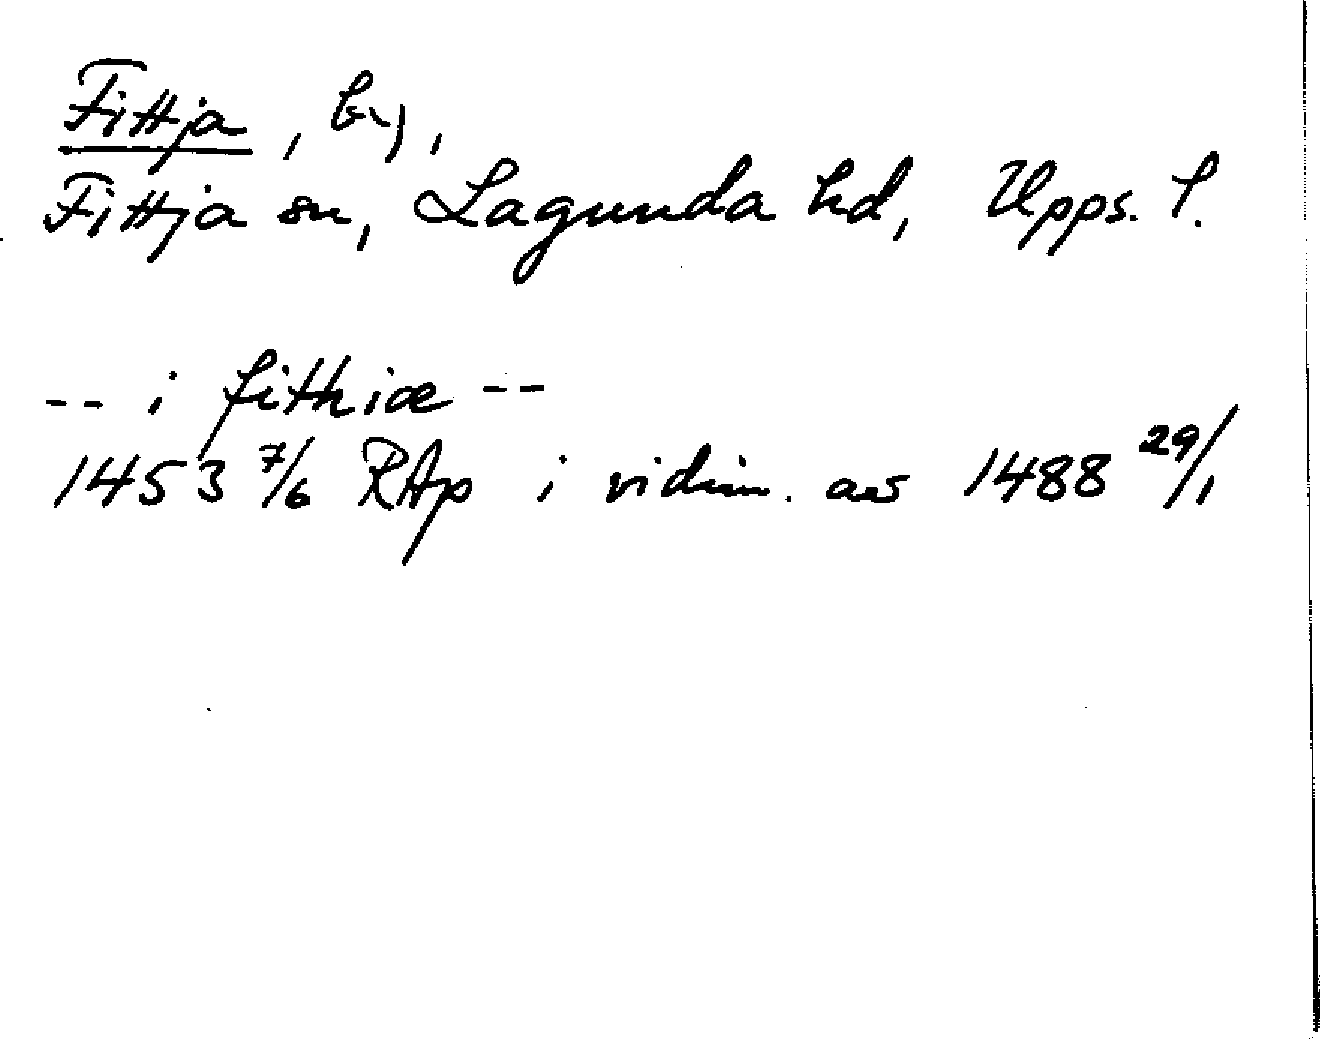 Fittja, by,
Fittja sn, Lagunda hd, Upps. l.
-- i fithiæ --
1453 7/6 RAp i vidim. av 1488 29/1